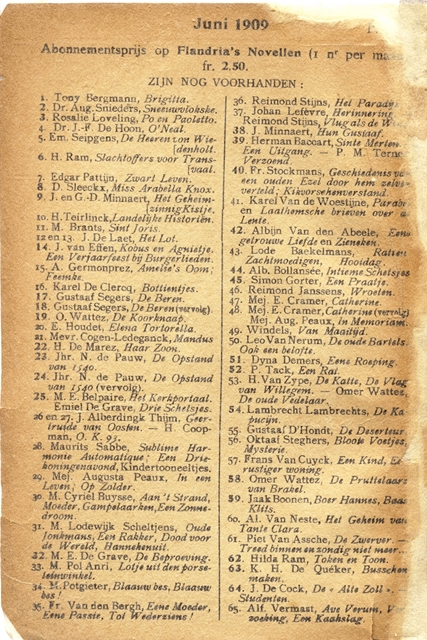 Juni 1909
Abonnementsprijs op Flandria's Novellen (1 nr per
fr. 2.50.
ZIJN NOG VOORHANDEN :
1. Tony Bergmann, Brigitta.
2. Dr. Aug. Snieders, Sneeuwvlokske.
3. Rosalie Loveling, Po en Paoletto.
4. Dr. J.-F. De Hoon, O'Neal.
5. Em. Seipgens, De Heeren zon Wie-
[denholt.
6. H. Ram, Slachtoffers voor Trans-
[vaal.
7. Edgar Pattijn, Zwart Leven.
8. D. Sleeckx, Miss Arabella Knox.
9. J. en G.-D. Minnaert, Het Geheim-
zinnig Kistje.
10. H. Teirlinck, Landelijke Historiën.
11. M. Brants, Sint Joris.
12 en 13. J. De Laet, Het Lot.
14. J. van Effen, Kobus en Agnietje.
Een Verjaarfeest bij Burgerlieden.
15. A. Germonprez, Amelie's Oom;
Feemke.
16. Karel De Clercq, Bottientjes.
17. Gustaaf Segers, De Beren.
18. Gustaaf Segers, De Beren (vervolg)
19. O. Wattez, De Koorknaap.
20. E. Houdet, Elena Tortorella.
21. Mevr. Cogen-Ledeganck, Mandus
22. H. De Marez, Haar Zoon.
23. Jhr. N. de Pauw, De Opstand
van 1540.
24. Jhr. N. de Pauw, De Opstand
van 1540 (vervolg).
25. M. E. Belpaire, Het Kerkportaal.
Emiel De Grave, Drie Schetsjes.
26 en 27. J. Alberdingk Thijm, Geer-
truide van Oosten. — H. Coop-
man, O. K. 93.
28. Maurits Sabbe, Sublime Har-
monie Automatique; Een Drie-
koningenavond, Kindertooneeltjes.
29. Mej. Augusta Peaux, In een
Leven; Op Zolder.
30. M. Cyriel Buysse, Aan 't Strand,
Moeder, Gampelaarken, Een Zonne-
droom.
31. M. Lodewijk Scheltjens, Oude
Jonkmans, Een Rakker, Dood voor
de Wereld, Hannekenuit.
32. M. E. De Grave, De Beproeving.
33. M. Pol Anri, Lotje uit den porse-
leinwinkel.
34. M. Potgieter, Blaauw bes, Blaauw
bes!
35. Fr. Van den Bergh, Eene Moeder,
Eene Passie, Tot Wederziens!
36. Reimond Stijns, Het
37. Johan Lefèvre, Herinnering
Reimond Stijns, Vlug als de
38. J. Minnaert, Hun Gustaaf.
39. Herman Baccart, Sinte Merten
Een Uitgang. — P. M.
Verzoend.
40. Fr. Stockmans, Geschiedenis
een ouden Ezel door hem
verteld; Kikvorschenverstand.
41. Karel Van de Woestijne,
en Laathemsche brieven over
Lente.
42. Albijn Van den Abeele,
getrouwe Liefde en Zieneken.
43. Lode Baekelmans,
Zachtmoedigen, Hooidag.
44. Alb. Bollansée, Intieme Schetsjes
45. Simon Gorter, Een Praatje.
46. Reimond Janssens, Wroeten.
47. Mej. E. Cramer, Catherine.
48. Mej. E. Cramer, Catherine (vervolg)
Mej. Aug. Peaux, In Memoriam.
49. Windels, Van Maaitijd.
50. Leo Van Nerum, De oude Bartels.
Ook een belofte.
51. Dyna Demers, Eene Roeping.
52. P. Tack, Een Rai.
53. H. Van Zype, De Katte, De Vlag
van Willegem. — Omer Wattez,
De oude Vedelaar.
54. Lambrecht Lambrechts, De
pucijn.
55. Gustaaf D'Hondt, De Deserteur
56. Oktaaf Steghers, Bloote Voetjes,
Mysterie.
57. Frans Van Cuyck, Een Kind,
rustiger woning.
58. Omer Wattez, De Pruttelaars
van Brakel.
59. Jaak Boonen, Boer Hannes,
Klits.
60. Al. Van Neste, Het Geheim van
Tante Clara.
61. Piet Van Assche, De Zwerver. —
Treed binnen en zondig niet meer.
62. Hilda Ram, Token en Toon.
63. K. H. De Quéker, Busschen
maken.
64. J. De Cock, De « Alte Zoll ».
Studenten.
65. Alf. Vermast, Ave Verum,
zoeking, Een Kaakslag.